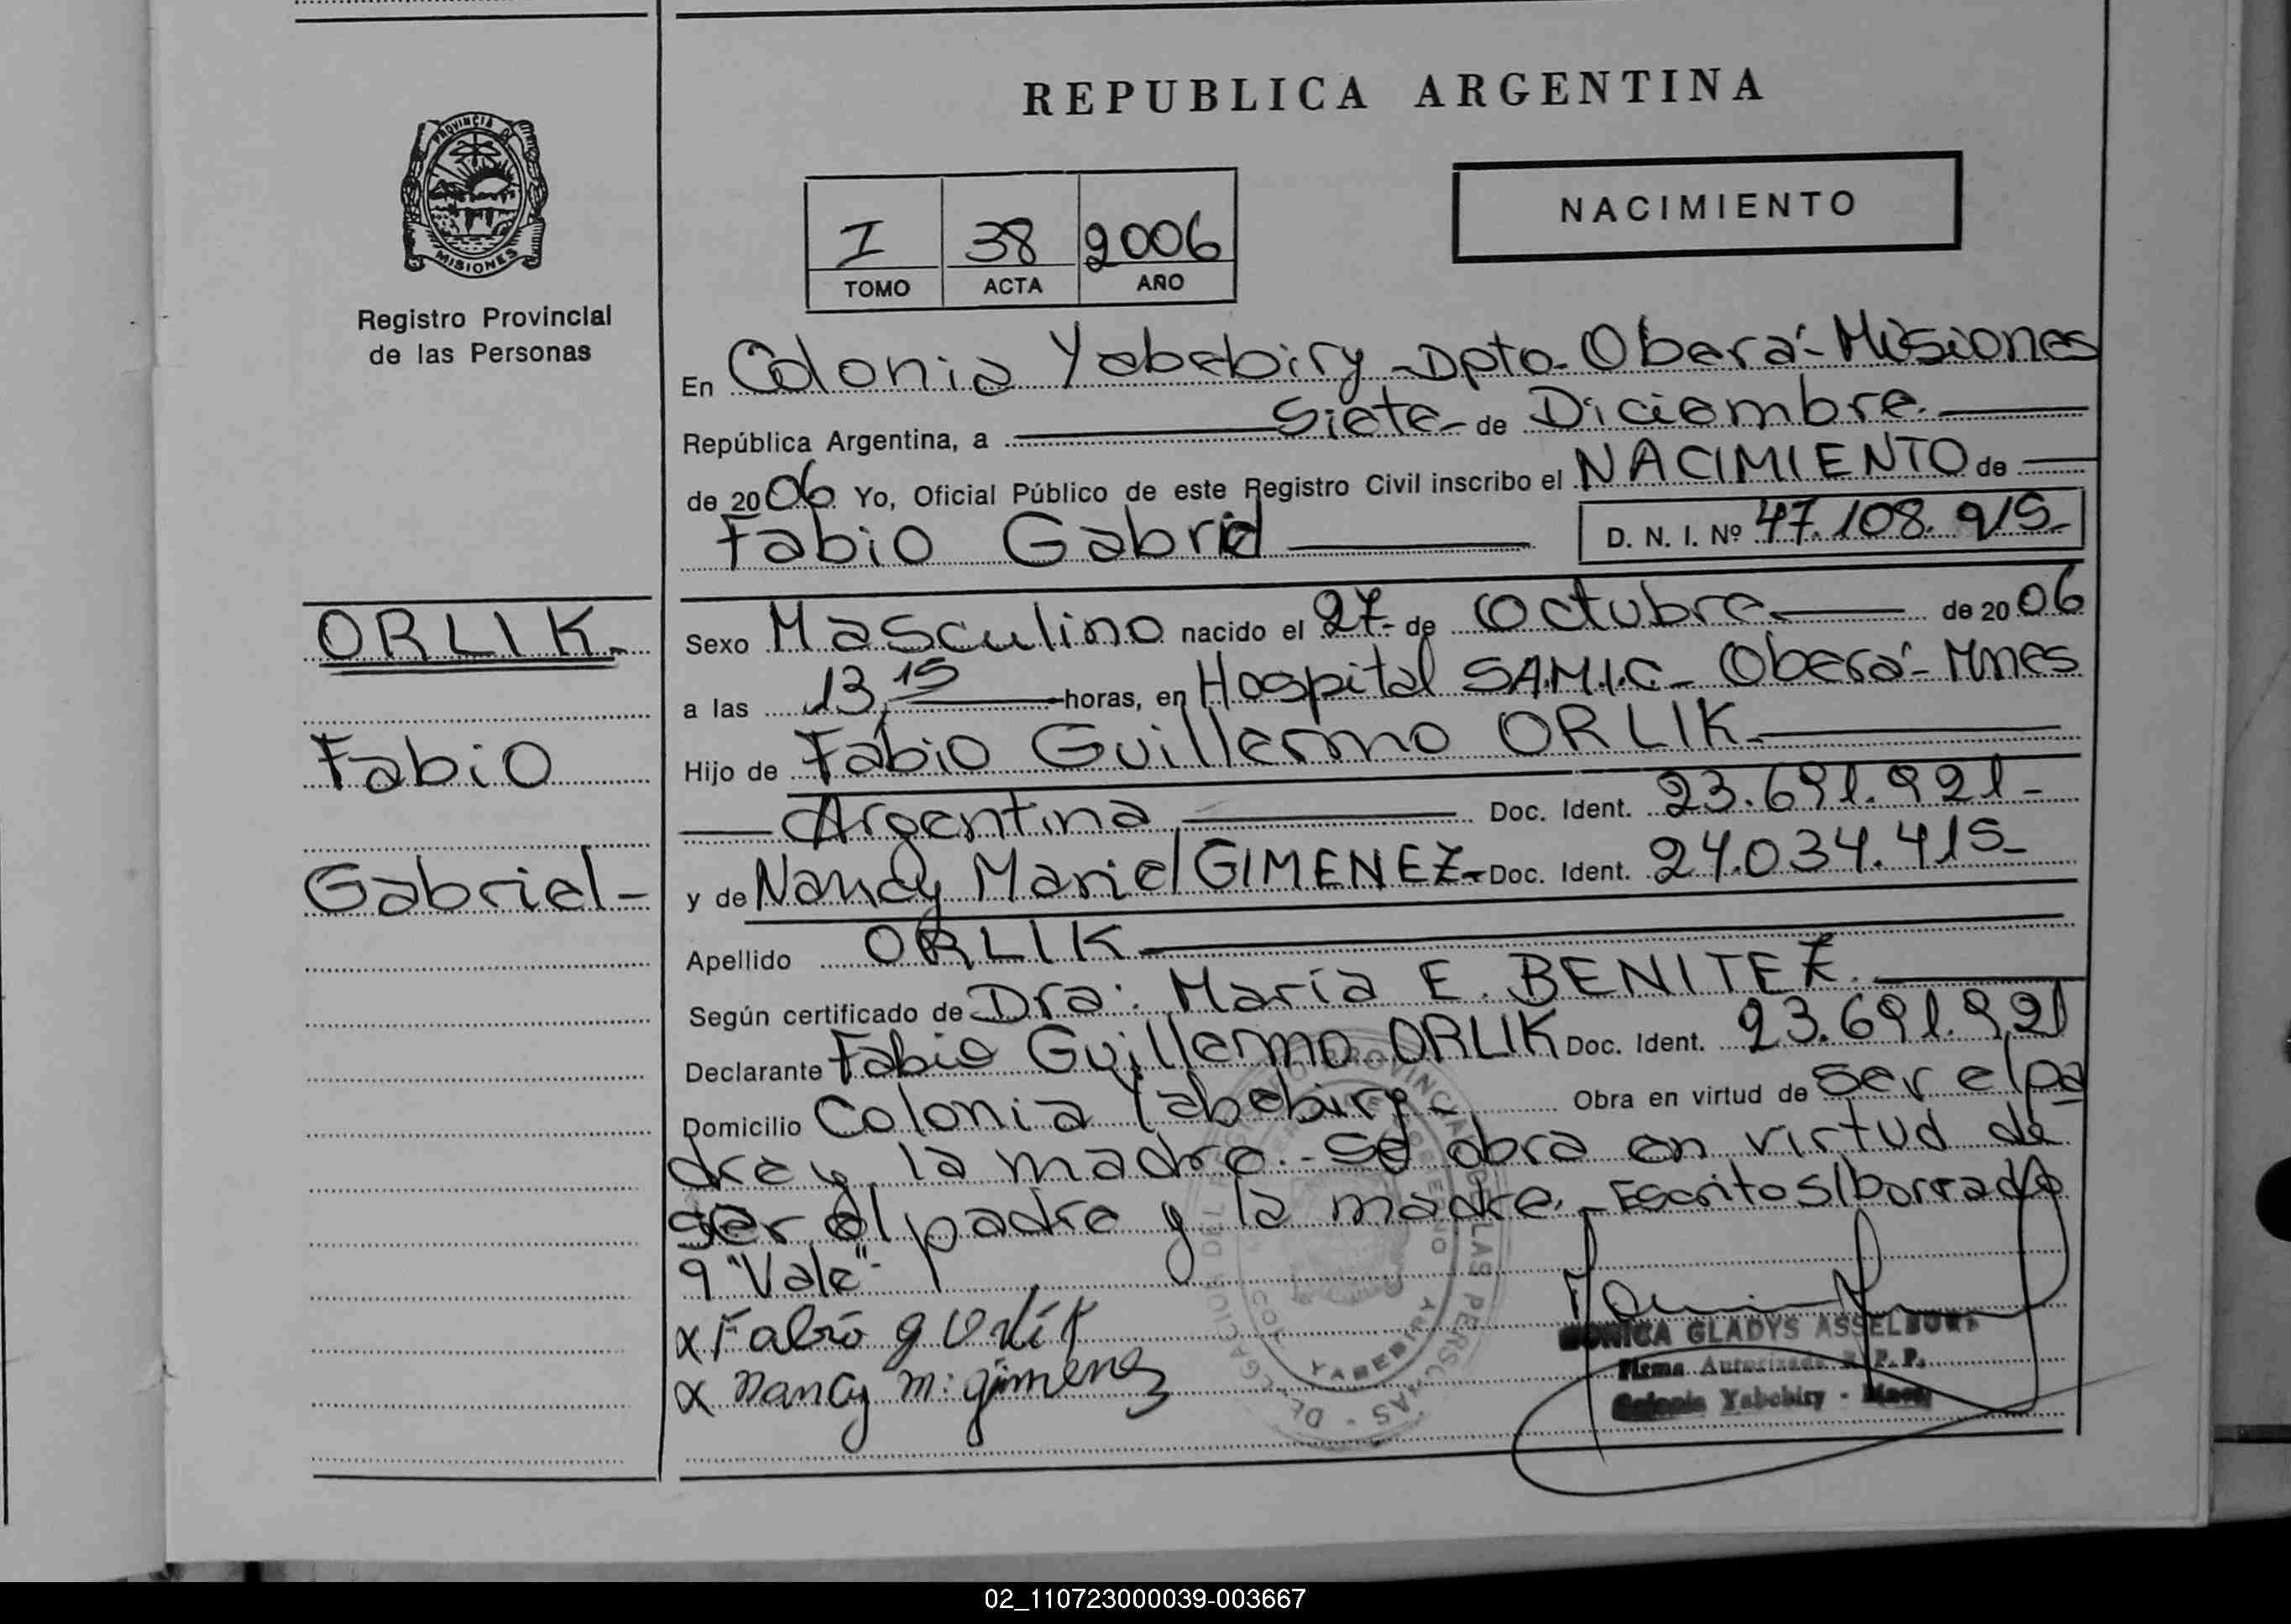 REPUBLICA ARGENTINA
PROVINCIA DE
MISIONES
Registro Provincial
de las Personas
I 38 2006
TOMO ACTA AÑO
NACIMIENTO
En Colonia Yabebiry - Dpto. Oberá - Misiones
República Argentina, a Siete - de Diciembre.
de 2006 Yo, Oficial Público de este Registro Civil inscribo el NACIMIENTO de
Fabio Gabriel
D. N. I. Nº 47.108.915-
ORLIK.
Fabio
Gabriel-
Sexo Masculino nacido el 27- de Octubre de 2006
a las 13,15 horas, en Hospital S.A.M.I.C- Oberá - Mnes
Hijo de Fabio Guillermo ORLIK.
Argentina Doc. Ident. 23.691.921-
y de Nancy Mariel GIMENEZ- Doc. Ident. 24.034.415-
Apellido ORLIK
Según certificado de Dra: María E. BENITEZ.
Declarante Fabio Guillermo ORLIK Doc. Ident. 23.691.921
Domicilio Colonia Yabebiry - Obra en virtud de ser el pa
dre y la madre.- Se obra en virtud de
ser el padre y la madre.- Escrito s/borrado
9 "Vale"-
x Fabio g Orlik
x Nancy m: gimenez
MONICA GLADYS ASSELBORN
Firma Autorizada R. P. P.
Colonia Yabebiry - Mnes
02_110723000039-003667